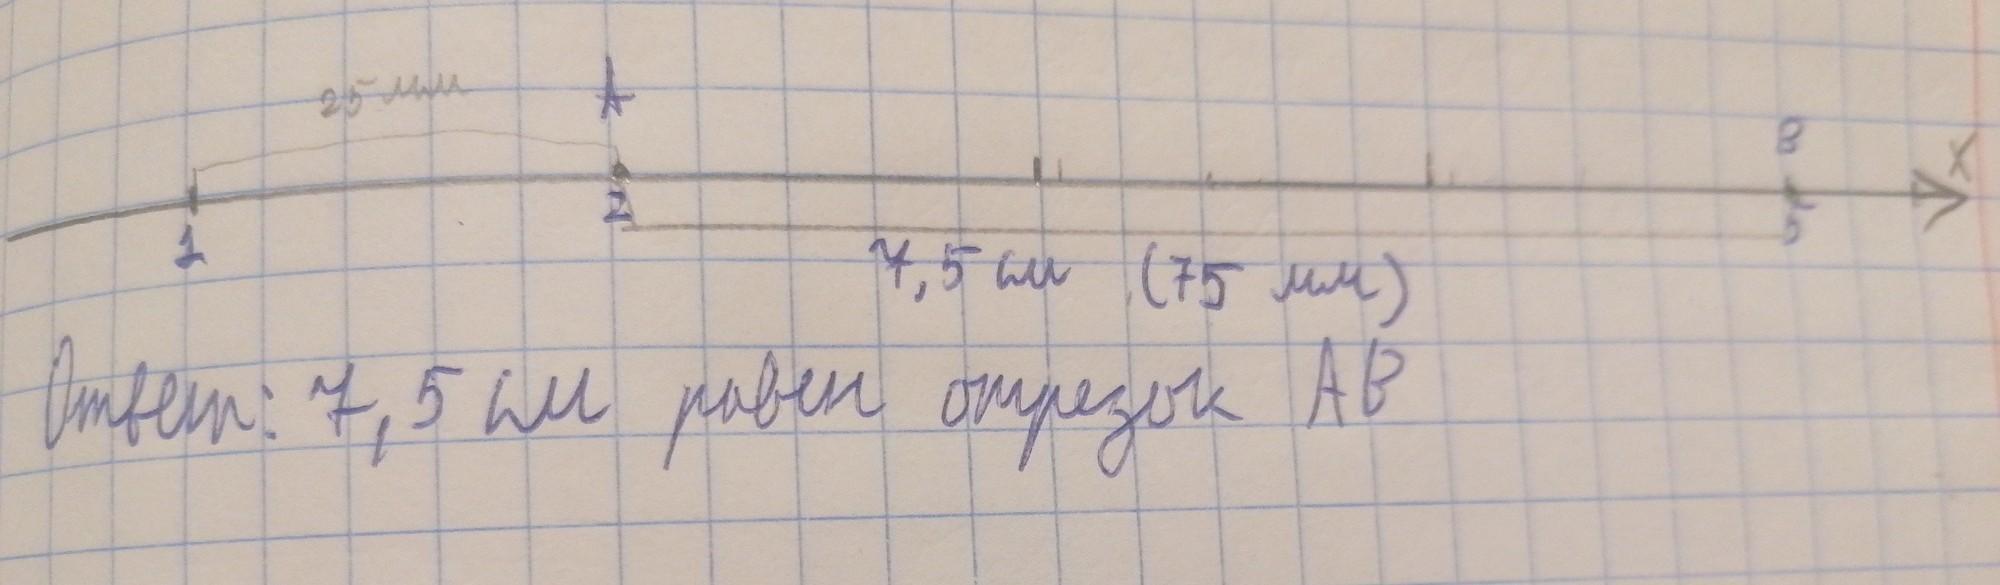 25 мм A
B X
1 2 5
7,5 см (75 мм)
Ответ: 7,5 см равен отрезок AB